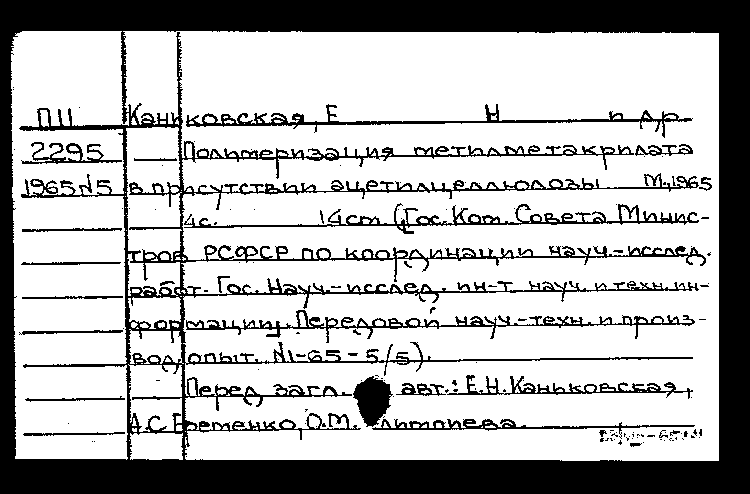 ПII Каньковская, Е Н и др
2295 Полимеризация метилметакрилата
1965 №5 в присутствии ацетилцеллюлозы М., 1965
4с. 14cm (Гос. Ком. Совета Минис-
тров РСФСР по координации науч.-исслед.
работ. Гос. Науч.-исслед. ин-т науч. и техн. ин-
формации. Передовой науч.-техн. и произ-
вод. опыт. №1-65-5/5).
Перед загл. авт.: Е.Н. Каньковская,
А.С Еременко, О.М.